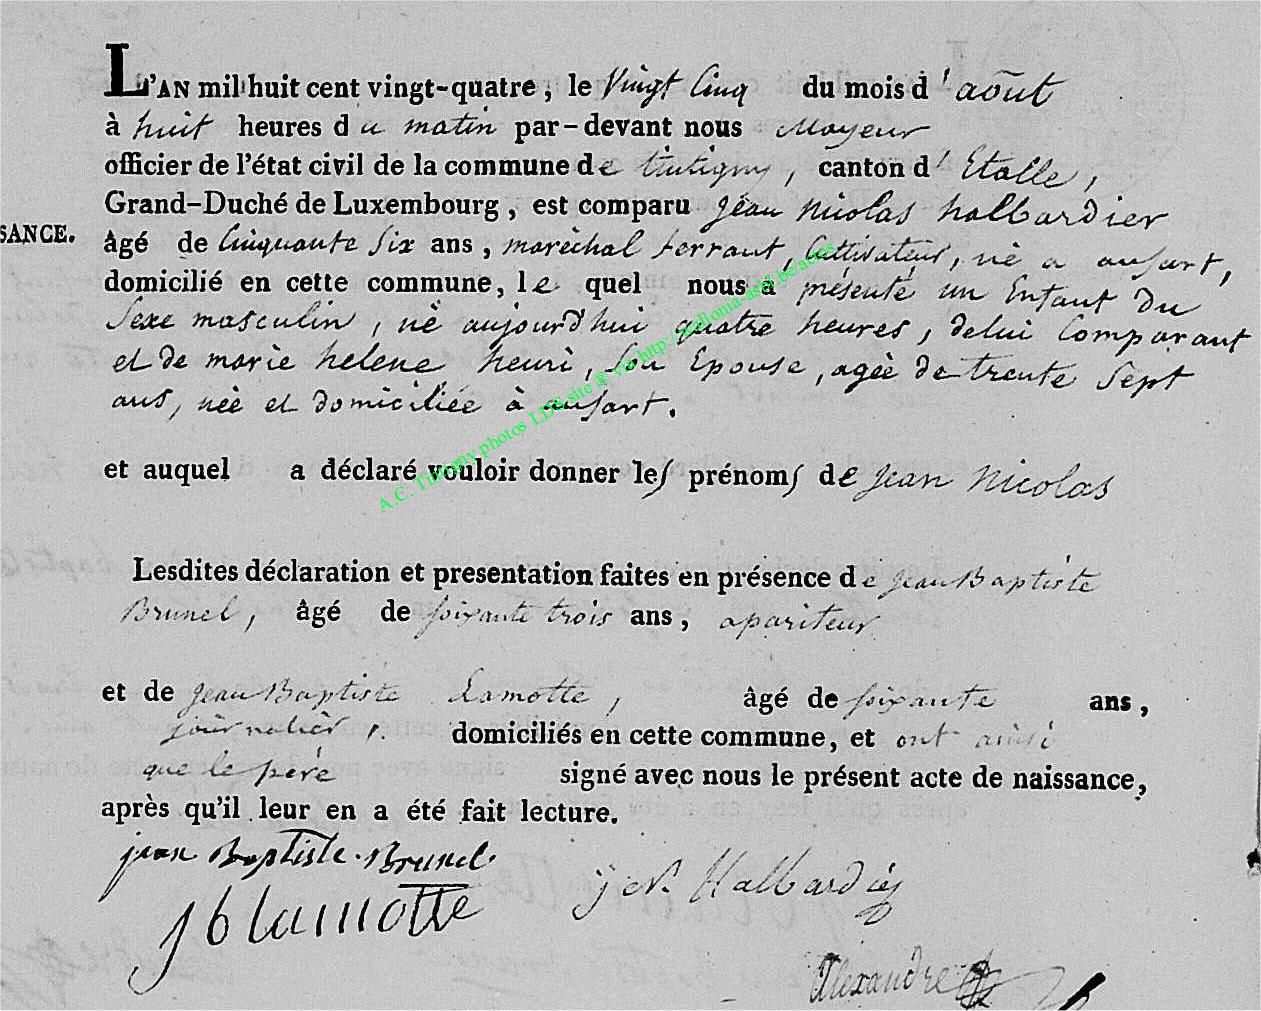 L'AN mil huit cent vingt-quatre, le Vingt Cinq du mois d'août
à huit heures du matin par-devant nous Mayeur
officier de l'état civil de la commune de tintigny, canton d'Etalle,
Grand-Duché de Luxembourg, est comparu Jean nicolas halbardier
SANCE.
âgé de Cinquante Six ans, maréchal ferrant, Cultivateur, né a ansart,
domicilié en cette commune, le quel nous a présenté un Enfant Du
Sexe masculin, né aujourd'hui quatre heures, de lui Comparant
et de marie helene henri, Son Epouse, agée de trente Sept
ans, née et domiciliée à ansart.
et auquel a déclaré vouloir donner les prénoms de Jean Nicolas
Lesdites déclaration et presentation faites en présence de Jean Baptiste
Brunel, âgé de soixante trois ans, apariteur
et de Jean Baptiste Lamotte, âgé de soixante ans,
journalier, domiciliés en cette commune, et ont ainsi
que le père signé avec nous le présent acte de naissance,
après qu'il leur en a été fait lecture.
jean Baptiste Brunel
J N Halbardier
J b lamotte
Alexandre
A.C. Tintigny photos LDS site ® via http://wallonia-asbl.be/actes